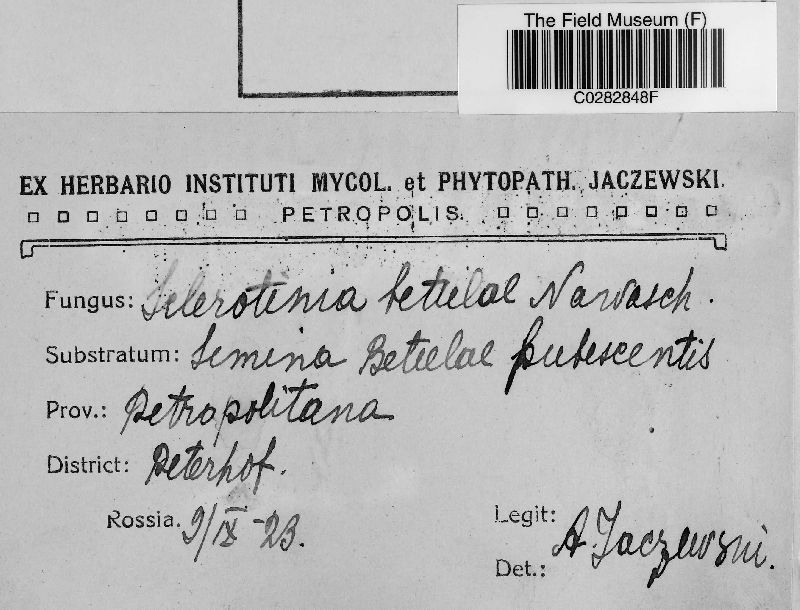 The Field Museum (F)
C0282848F
EX HERBARIO INSTITUTI MYCOL. et PHYTOPATH. JACZEWSKI.
PETROPOLIS.
Fungus: Sclerotinia betulae Nawasch.
Substratum: Semina Betulae pubescentis
Prov.: Petropolitana
District: Peterhof.
Rossia. 9/IX-23.
Legit: A. Jaczewski.
Det.: